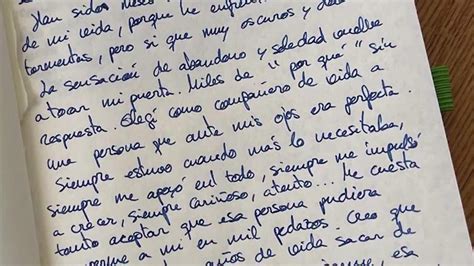 Han sido meses
de mi vida, porque he enfren
tormentas, pero si que muy oscuros y do
La sensación de abandono y soledad vuelve
a tocar mi puerta. Miles de "por qué" sin
respuesta. Elegí como compañero de vida a
una persona que ante mis ojos era perfecta.
Siempre estuvo cuando más lo necesitaba,
siempre me apoyó en todo, siempre me impulsó
a crecer, siempre cariñoso, atento... Me cuesta
tanto aceptar que esa persona pudiera
a mi en mil pedazos. Creo que
años de vida sacar de
esa